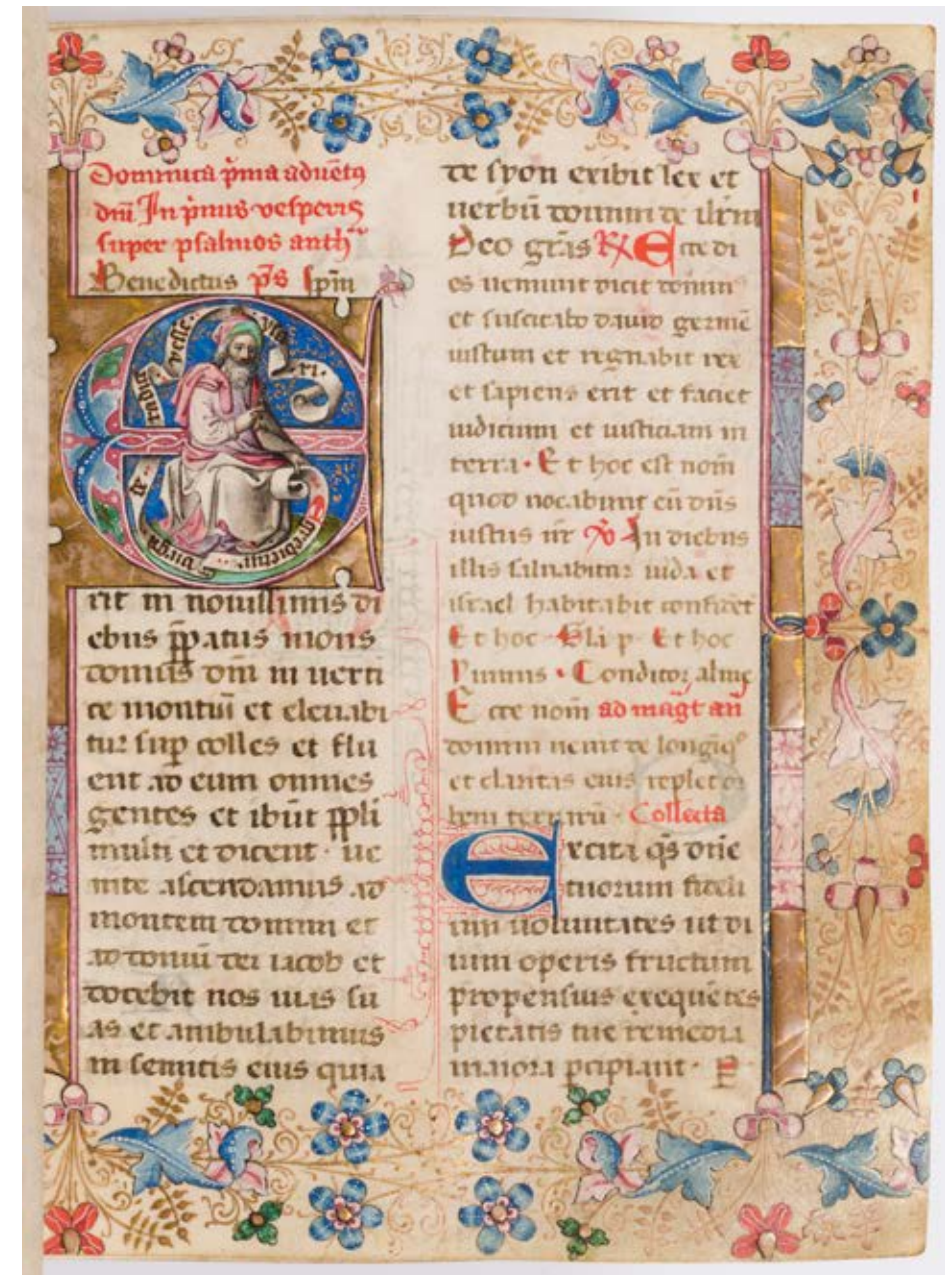 Dominica p̄ma aduētꝰ
dn̄i In p̄mis vesperis
super psalmos anth̄
Benedictus p̄s ip̄m
Egredietur virga de radice yesse
rit in nouissimis di
ebus p̄paratus mons
domus dn̄i in uerti
ce montiū et eleuabi
tur sup̄ colles et flu
ent ad eum omnes
gentes et ibūt pp̄li
multi et dicent · ue
nite ascendamus ad
montem domini et
ad domū dei iacob et
docebit nos uias su
as et ambulabimus
in semitis eius quia
de syon exibit lex et
uerbū domini de ilr̄m
Deo gr̄as R̸ Ecce di
es ueniunt dicit domin
et suscitabo dauid germē
iustum et regnabit rex
et sapiens erit et faciet
iudicium et iusticiam in
terra · Et hoc est nom̄
quod uocabunt eū dn̄s
iustus nr̄ V̸ In diebus
illis saluabitur iuda et
israel habitabit confidēt
Et hoc · Gl̄i p · Et hoc
Pimnis · Conditor alme
Ecce nom̄ ad mag̅t an̄
domini uenit de longiq°
et claritas eius replet or
bem terrarū · Collecta
Excita qs̄ dn̄e
tuorum fideli
um uoluntates ut di
uini operis fructum
propensius exequētes
pietatis tue remedia
maiora p̄cipiant · P